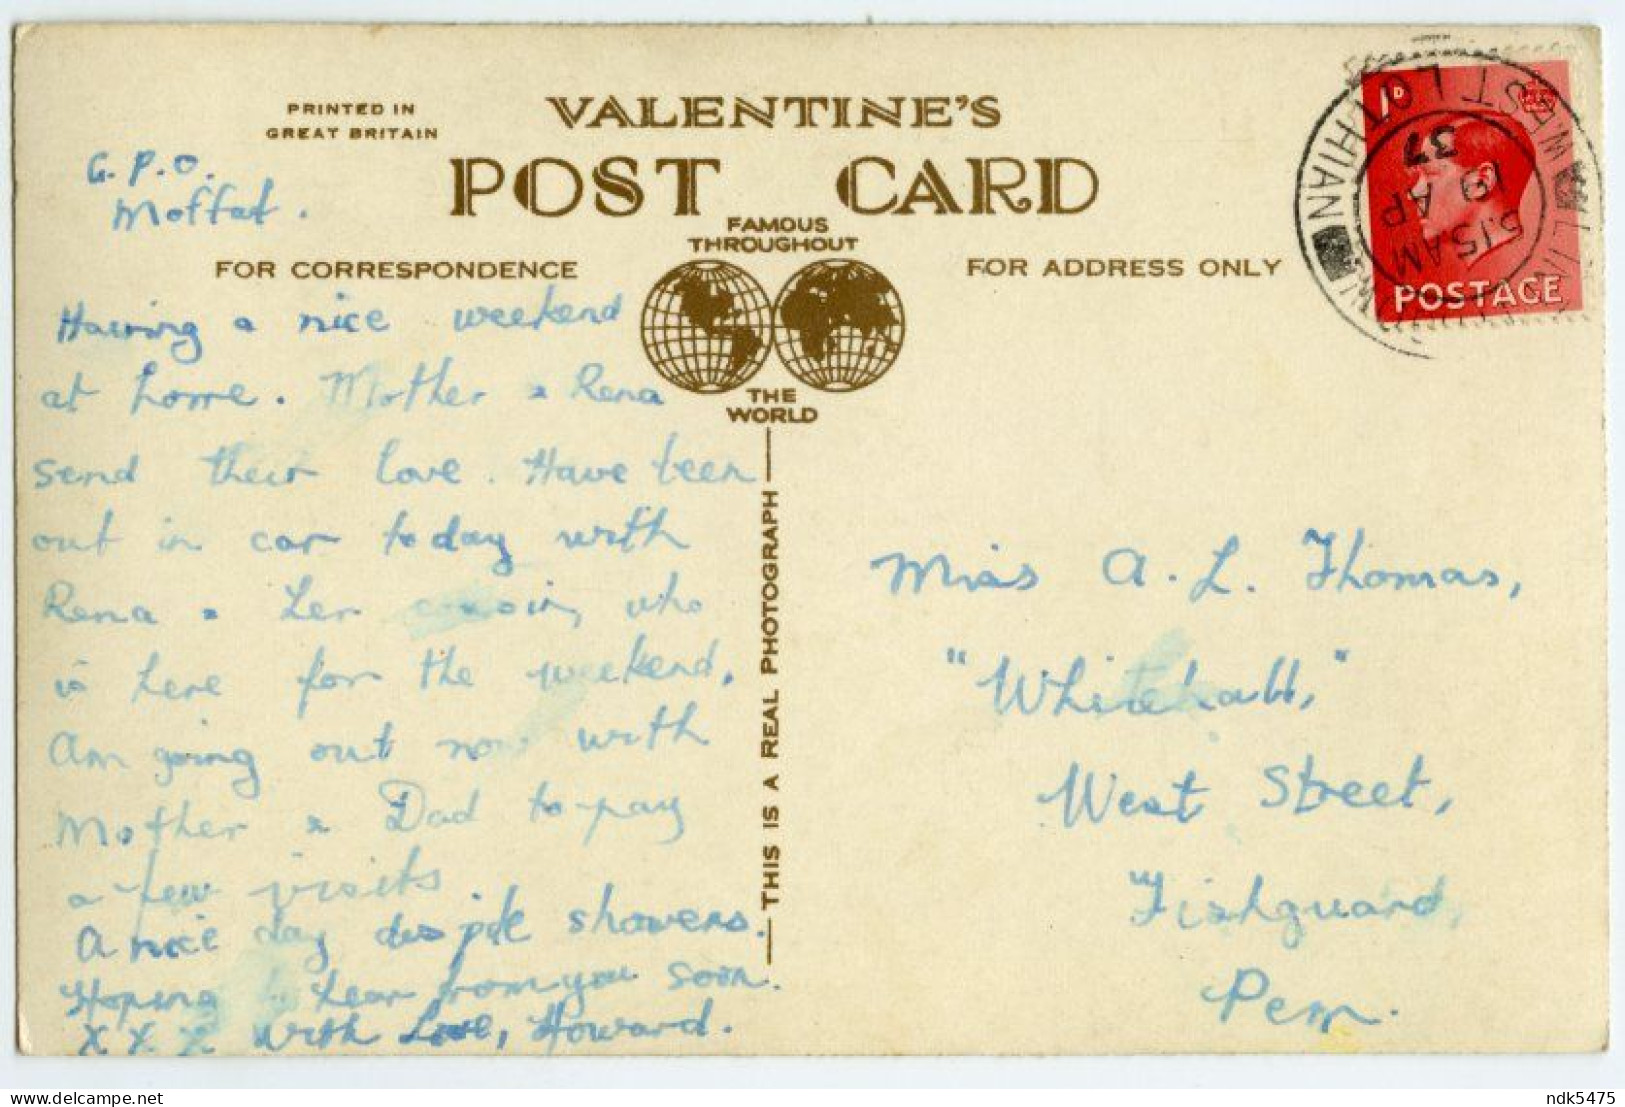 PRINTED IN
GREAT BRITAIN
VALENTINE'S
POST CARD
FAMOUS
THROUGHOUT
THE
WORLD
FOR CORRESPONDENCE
FOR ADDRESS ONLY
THIS IS A REAL PHOTOGRAPH
G.P.O.
Moffat.
Having a nice weekend
at home. Mother & Rena
send their love. Have been
out in car today with
Rena & her cousin, who
is here for the weekend.
Am going out now with
Mother & Dad to pay
a few visits
A nice day despite showers.
Hoping to hear from you soon.
X X X With Love, Howard.
1D
POSTAGE
WEST LOTHIAN
5.15 AM
19 AP
37
Miss A. L. Thomas,
"Whitehall,"
West Street,
Fishguard,
Pem.
delcampe.net
ndk5475